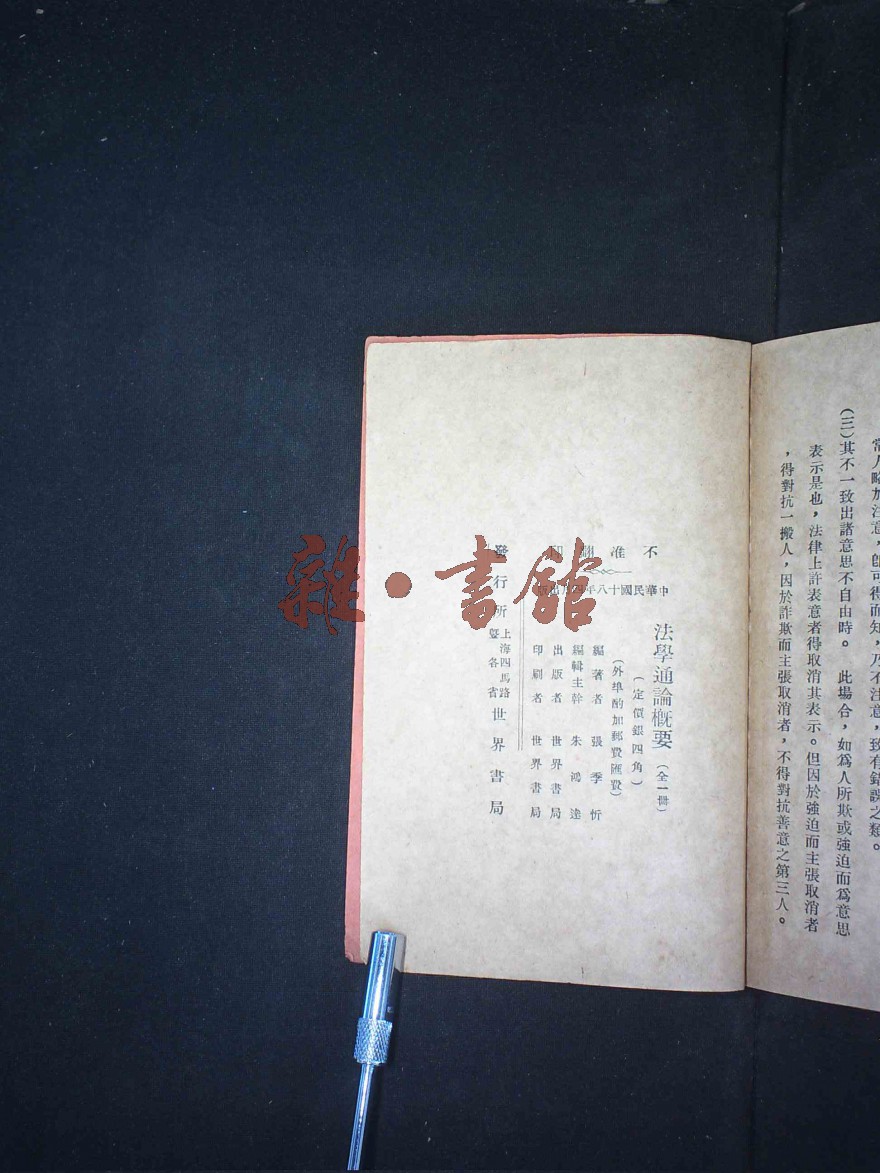 常人略加注意，卽可得而知，乃不注意，致有錯誤之類。
(三)其不一致出諸意思不自由時。 此場合，如爲人所欺或強迫而爲意思
表示是也，法律上許表意者得取消其表示。但因於強迫而主張取消者
，得對抗一搬人，因於詐欺而主張取消者，不得對抗善意之第三人。
不准翻印
中華民國十八年四月出版
法學通論概要 (全一冊)
(定價銀四角)
(外埠酌加郵費匯費)
編著者 張季忻
編輯主幹 朱鴻達
出版者 世界書局
印刷者 世界書局
發行所 上海四馬路 曁各省 世界書局
雜·書館